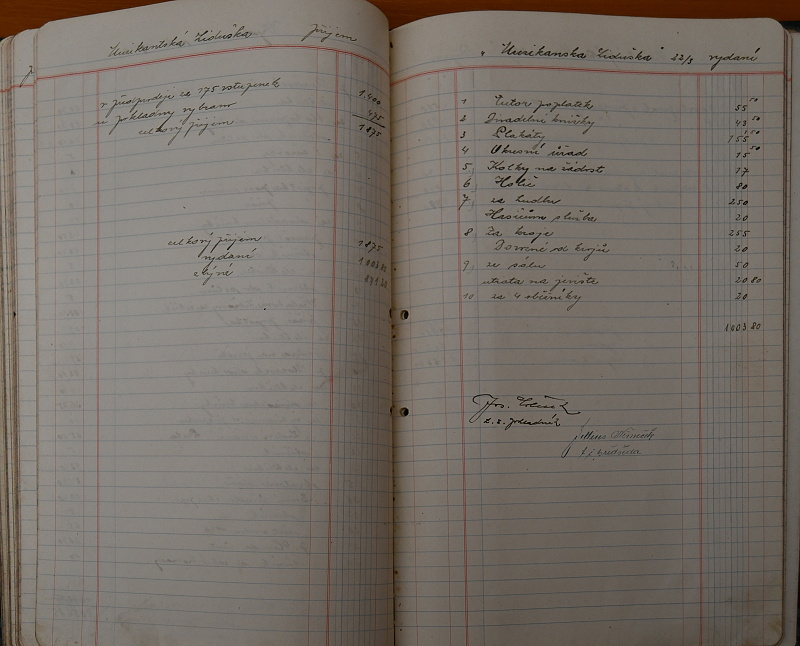 Muzikantská Liduška příjem
v předprodeji za 175 vstupenek 1.400
u pokladny vybráno 475
celkový příjem 1875
celkový příjem 1875
vydání 1003 80
zbývá 871 20
„Muzikanska Liduška" 22/3 vydání
1 Tutor poplatek 55 50
2 Divadelní knížky 43 50
3 Plakáty 155 50
4 Okresní úřad 15 50
5 Kolky na žádost 17
6 Holič 80
7 za hudbu 250
Hasičům služba 20
8 Za kroje 255
Dovozné od krojů 20
9 za sálu 50
útrata na jeviště 20 80
10 za 4 sborníky 20
1003 80
Jos.
t. č. pokladník
t. č.